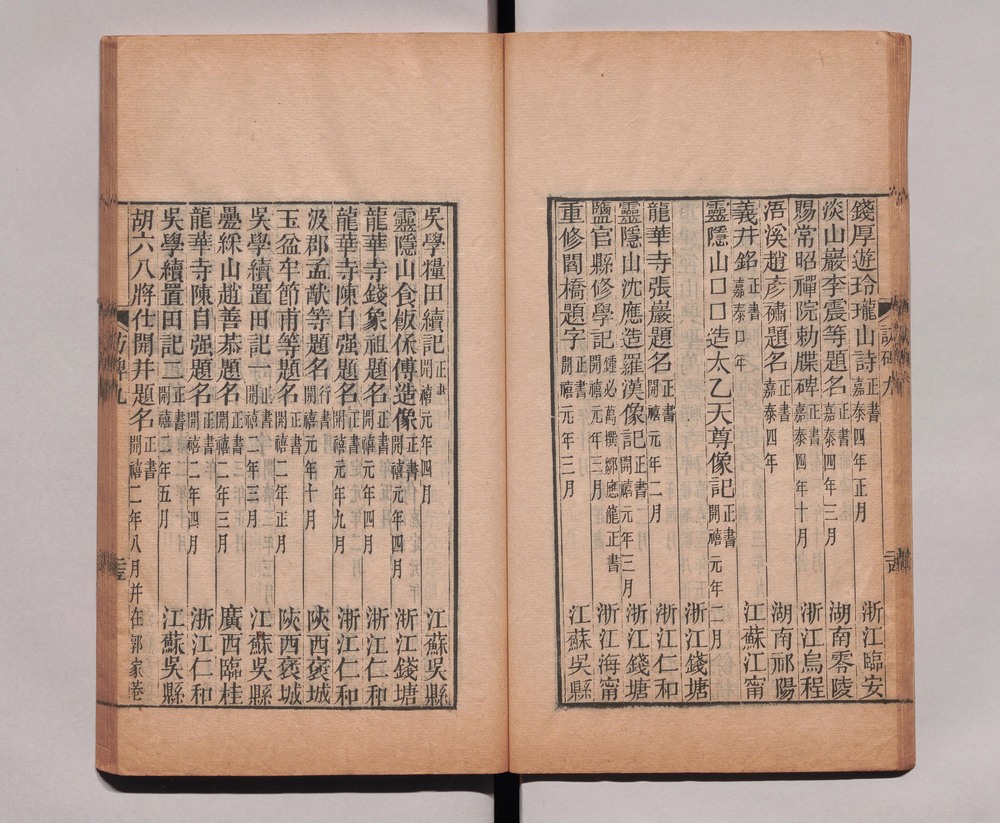 錢厚遊玲瓏山詩 正書 嘉泰四年正月 浙江臨安
淡山巖李震等題名 正書 嘉泰四年三月 湖南零陵
賜常昭禪院勅牒碑 正書 嘉泰四年十月 浙江烏程
浯溪趙彥橚題名 正書 嘉泰四年 湖南祁陽
義井銘 正書 嘉泰口年 江蘇江甯
靈隱山口口造太乙天尊像記 正書 開禧元年二月 浙江錢塘
龍華寺張巖題名 正書 開禧元年二月 浙江仁和
靈隱山沈應造羅漢像記 正書 開禧元年三月 浙江錢塘
鹽官縣修學記 鍾必萬撰鄒應龍正書 開禧元年三月 浙江海甯
重修閶橋題字 正書 開禧元年三月 江蘇吳縣
吳學糧田續記 正書 開禧元年四月 江蘇吳縣
靈隱山食飯係傅造像 正書 開禧元年四月 浙江錢塘
龍華寺錢象祖題名 正書 開禧元年四月 浙江仁和
龍華寺陳自强題名 正書 開禧元年九月 浙江仁和
汲郡孟猷等題名 行書 開禧元年十月 陝西褒城
玉盆牟節甫等題名 正書 開禧二年正月 陝西褒城
吳學續置田記一 正書 開禧二年三月 江蘇吳縣
疊綵山趙善恭題名 正書 開禧二年三月 廣西臨桂
龍華寺陳自强題名 正書 開禧二年四月 浙江仁和
吳學續置田記二 正書 開禧二年五月 江蘇吳縣
胡六八將仕開井題名 正書 開禧二年八月井在郭家巷